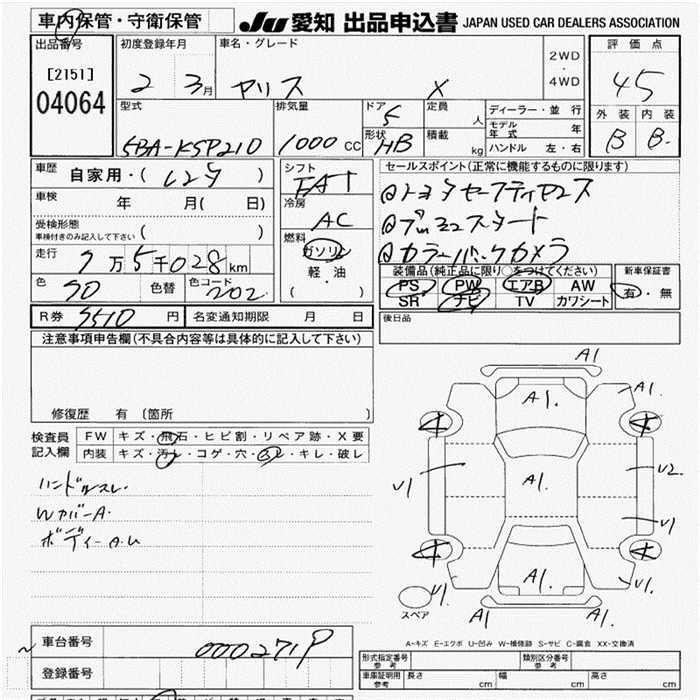 車内保管・守衛保管
JU 愛知 出品申込書 JAPAN USED CAR DEALERS ASSOCIATION
出品番号
[2151]
04064
初度登録年月
2 3月
車名・グレード
ヤリス X
2WD
・
4WD
評価点
4.5
外装 内装
B B
型式
5BA-KSP210
排気量
1000 CC
ドア
5
形状
HB
定員
人
積載
kg
ディーラー・並行
モデル年式 年
ハンドル 左・右
車歴
自家用・( レンタ )
車検
年 月( 日)
受検形態
車検付きのみ記入して下さい ( )
走行
7万5千028km
色
70 色替
色コード
202
シフト
FAT
冷房
AC
燃料
ガソリン
軽・油
( )
セールスポイント(正常に機能するものに限ります)
トヨタセーフティセンス
プッシュスタート
カラーバックカメラ
装備品(純正品に限り○をつけてください)
PS PW エアB AW
SR ナビ TV カワシート
新車保証書
有・無
R券 9510 円
名変通知期限 月 日
後日品
注意事項申告欄(不具合内容等は具体的に記入して下さい)
修復歴 有 〔箇所 〕
検査員
記入欄
FW キズ・飛石・ヒビ割・リペア跡・X要
内装 キズ・汚レ・コゲ・穴・スレ・キレ・破レ
ハンドルスレ
WカバーA.
ボディーA.U
A1
A1.
A1.
A1.
A1.
A1
A1
U1
U2.
U1
U1.
スペア
A-キズ E-エクボ U-凹み W-補修跡 S-サビ C-腐食 XX-交換済
車台番号
000271P
登録番号
形式指定番号
参考
類別区分番号
参考
車庫証明用
参考
長さ cm
幅 cm
高さ cm